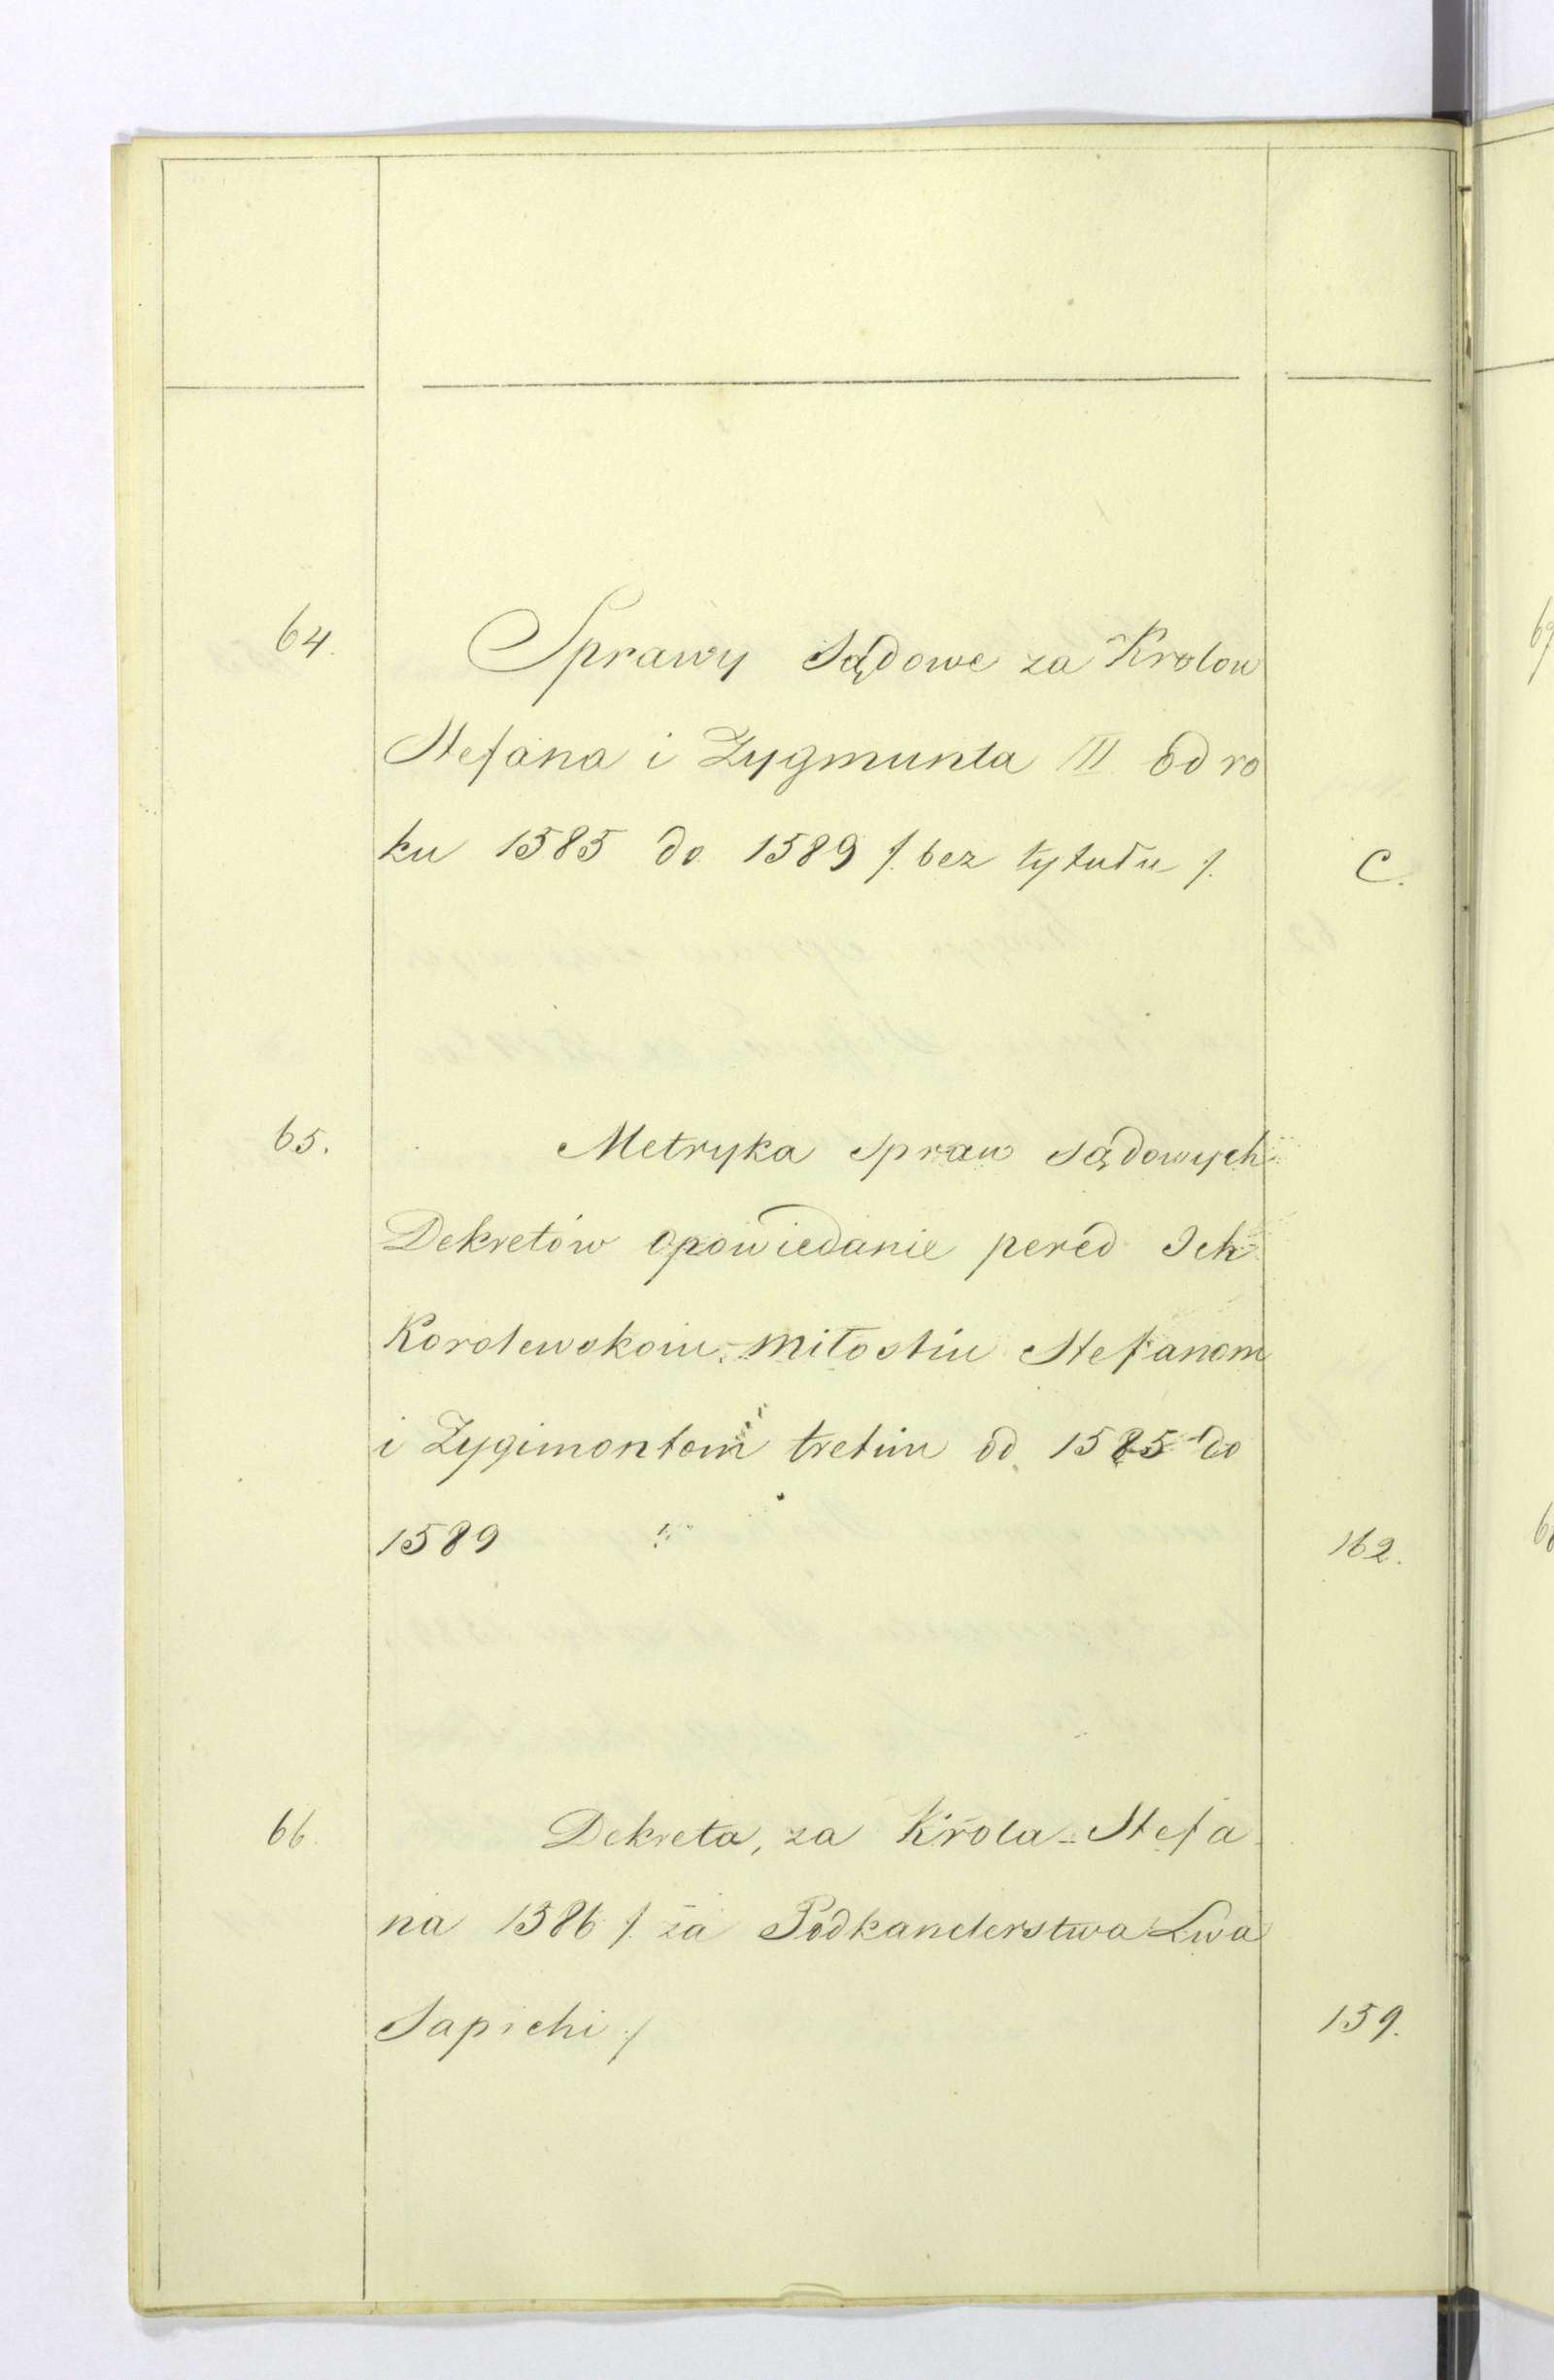 64. Sprawy Sądowe za Krolow
Stefana i Zygmunta III od ro
ku 1585 do 1589 /. bez tytułu /. C.
65. Metryka spraw sądowych
Dekretów opowiedanie pered Ich
Korolewskoiu miłostiu Stefanom
i Zygimontom tretim od 1585 do
1589 162.
66. Dekreta, za Króla Stefa
na 1586 /. za Podkanclerstwa Lwa
Sapiehi ./ 159.